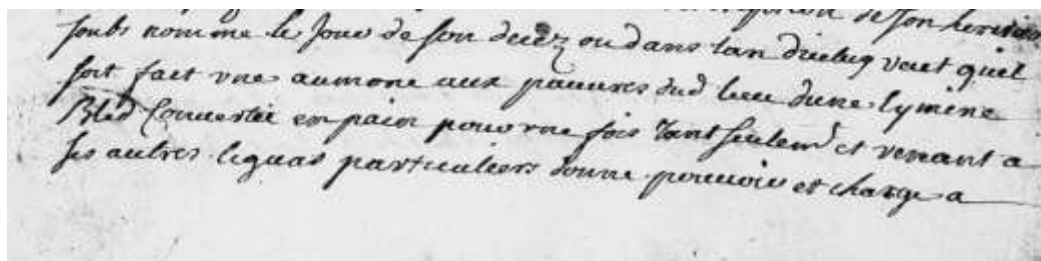 de son heritier
soubs nomme le jour de son decez ou dans lan dicelluy veut quil
soit faict une aumone aux pauvres dud lieu dune lymine
Bled Convertie en pain pour une fois tant seulemt et venant a
ses autres leguas particuliers donne pouvoir et charge a